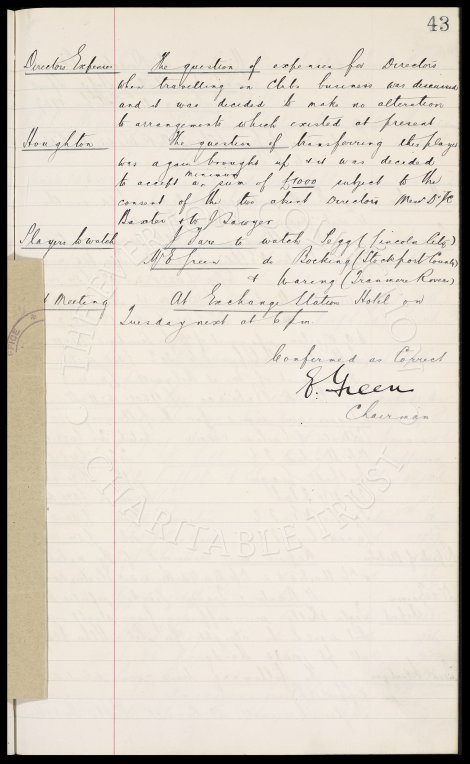 43
Directors Expenses The question of expenses for Directors
when travelling on Clubs business was discussed
and it was decided to make no alteration
to arrangements which existed at present
Houghton The question of transferring this player
was again brought up & it was decided
to accept a minimum sum of £1000 subject to the
consent of the two absent Directors Messrs Dr J C
Baxter & W J Sawyer
Players to watch J Fare to watch Legg (Lincoln City)
Mr E Green do Bocking (Stockport County)
& Waring (Tranmere Rovers)
Meeting At Exchange Station Hotel on
Tuesday next at 6 pm.
Confirmed as Correct
E. Green
Chairman
CHARITABLE TRUST